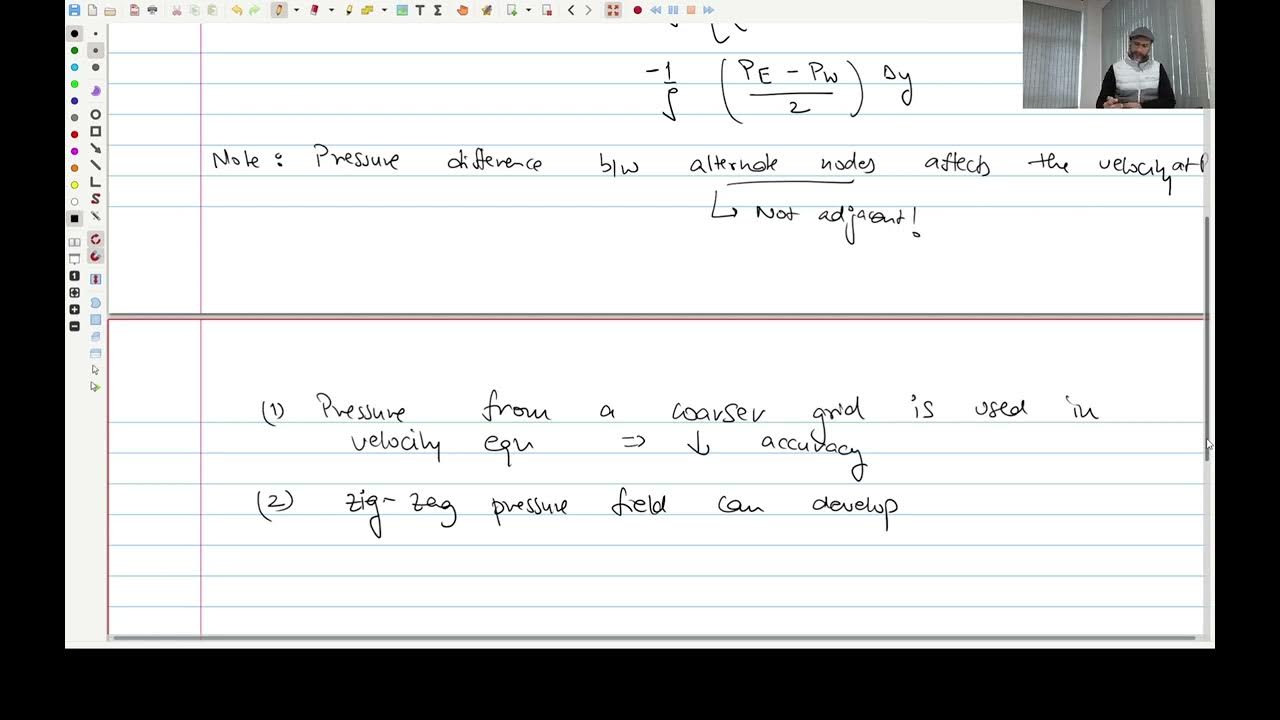 -1/ρ ( (P_E - P_W) / 2 ) Δy
Note : Pressure difference b/w alternate nodes affects the velocity at P
↳ Not adjacent!
(1) Pressure from a coarser grid is used in
velocity eqn ⇒ ↓ accuracy
(2) zig-zag pressure field can develop